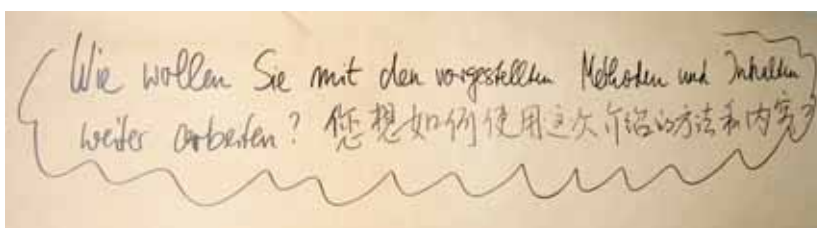 Wie wollen Sie mit den vorgestellten Methoden und Inhalten
weiter arbeiten? 您想如何使用这次介绍的方法和内容?